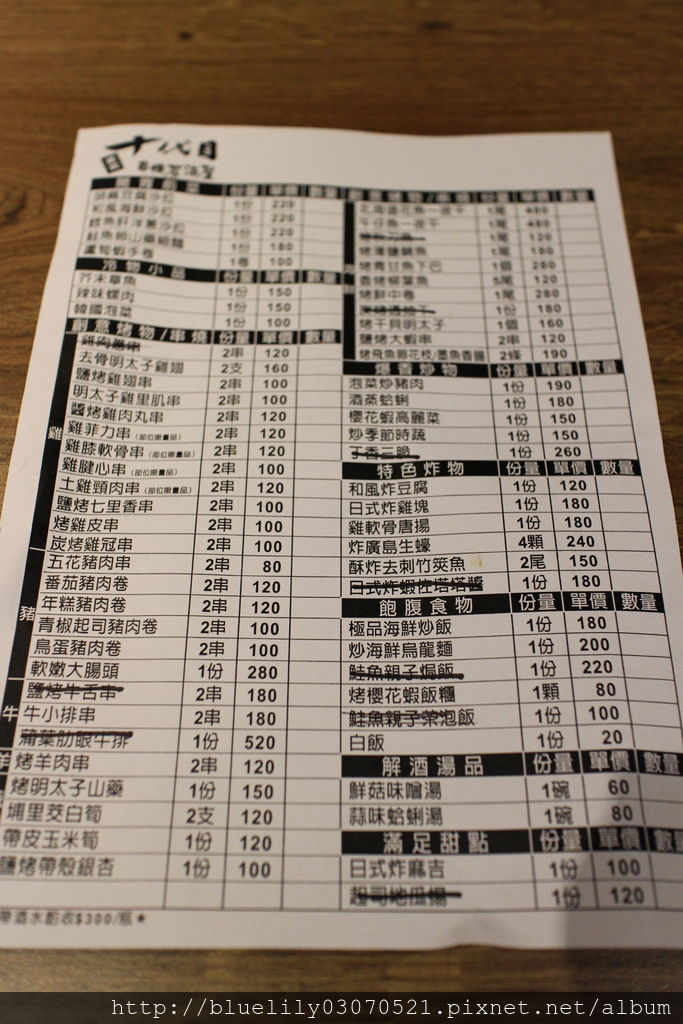 十代目
份量 單價 數量
1份 220
和風海鮮沙拉 1份 220
鱈魚肝洋蔥沙拉 1份 220
鮭魚卵山藥細麵 1份 180
蘆筍蝦手卷 1卷 100
冷物小品 份量 單價 數量
芥末章魚 1份 150
辣味螺肉 1份 150
韓國泡菜 1份 100
創意烤物/串燒 份量 單價 數量
雞
雞肉蔥串 2串 120
去骨明太子雞翅 2支 160
鹽烤雞翅串 2串 100
明太子雞里肌串 2串 100
醬烤雞肉丸串 2串 120
雞菲力串(部位限量品) 2串 120
雞膝軟骨串(部位限量品) 2串 120
雞腱心串(部位限量品) 2串 100
土雞頸肉串(部位限量品) 2串 120
鹽烤七里香串 2串 100
烤雞皮串 2串 100
炭烤雞冠串 2串 100
豬
五花豬肉串 2串 80
番茄豬肉卷 2串 120
年糕豬肉卷 2串 120
青椒起司豬肉卷 2串 100
鳥蛋豬肉卷 2串 100
軟嫩大腸頭 1份 280
牛
鹽烤牛舌串 2串 180
牛小排串 2串 180
蒲葉肋眼牛排 1份 520
羊
烤羊肉串 2串 120
烤明太子山藥 1份 150
埔里茭白筍 2支 120
帶皮玉米筍 1份 120
鹽烤帶殼銀杏 1份 100
帶酒水酌收$300/瓶★
份量 單價 數量
北海道花魚一夜干 1尾 480
午仔魚一夜干 1尾 480
1尾 120
烤薄鹽鯖魚 1尾 180
烤青甘魚下巴 1個 280
香烤柳葉魚 5尾 120
烤鮮中卷 1尾 280
1份 180
烤干貝明太子 1個 160
鹽烤大蝦串 2串 120
烤飛魚卵花枝/墨魚香腸 2條 190
爆香炒物 份量 單價 數量
泡菜炒豬肉 1份 190
酒蒸蛤蜊 1份 180
櫻花蝦高麗菜 1份 150
炒季節時蔬 1份 150
丁香三脆 1份 260
特色炸物 份量 單價 數量
和風炸豆腐 1份 120
日式炸雞塊 1份 180
雞軟骨唐揚 1份 180
炸廣島生蠔 4顆 240
酥炸去刺竹筴魚 2尾 150
日式炸蝦佐塔塔醬 1份 180
飽腹食物 份量 單價 數量
極品海鮮炒飯 1份 180
炒海鮮烏龍麵 1份 200
鮭魚親子焗飯 1份 220
烤櫻花蝦飯糰 1顆 80
鮭魚親子茶泡飯 1份 100
白飯 1份 20
解酒湯品 份量 單價 數量
鮮菇味噌湯 1碗 60
蒜味蛤蜊湯 1碗 80
滿足甜點 份量 單價 數量
日式炸麻吉 1份 100
起司地瓜揚 1份 120
http://bluelily03070521.pixnet.net/album